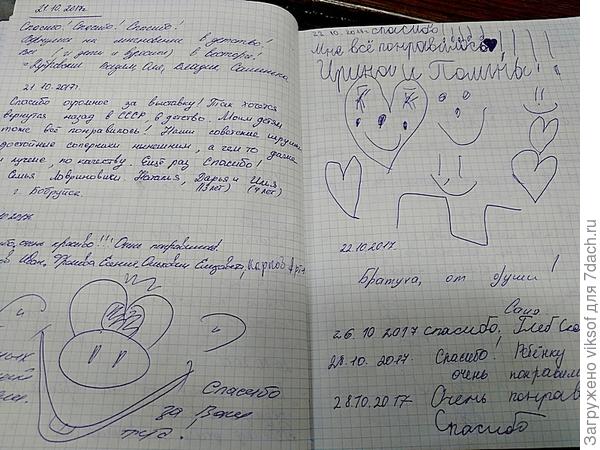 21.10.2017г.
Спасибо! Спасибо! Спасибо!
на мгновение в детство!
Все (и дети и взрослые) в восторге!
Вадим, Оля, Владик, Саминка
21.10.2017г.
Спасибо огромное за выставку! Так хочется
вернутся назад в СССР, в детство. Моим детям
тоже всё понравилось! Наши советские игрушки
достойные соперники нынешним, а чем то даже
и лучше, по качеству. Ещё раз Спасибо!
Семья Лавриновики. Наталия, Дарья и Илия
(13 лет) (4 лет)
г. Бобруйск.
10.2017г
очень красиво!!! Очень понравилось!
Иван, Елизавета, Карпов
Спасибо
за Вашу
22.10.2017 спасибо!!!!!!!!!
Мне всё понравилось
Ирина и Полина!
22.10.2017.
Братуха, от души!
Саша
26.10.2017 спасибо, Глеб
28.10.2017. Спасибо! Ребёнку
очень понравил
28.10.2017 Очень понрав
Спасибо
Загружено viksof для 7dach.ru